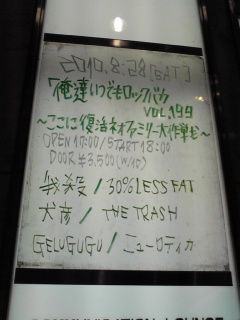 2010.8.28[SAT]
「俺達いつでもロックバカ
VOL.199
～ここに復活ネオファミリー大作戦ど～
OPEN 17:00/START 18:00
DOOR ¥3,500(W/1D)
我殺/30%LESS FAT
犬彦/THE TRASH
GELUGUGU/ニューロティカ
COMMUNICATION LOUNGE